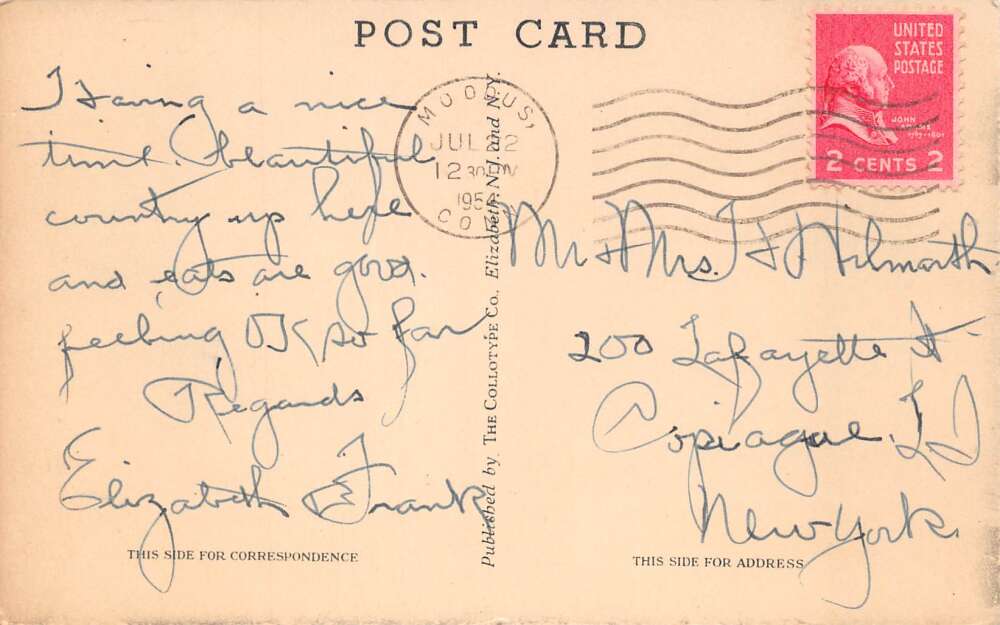 POST CARD
Having a nice
time. beautiful
country up here
and eats are good.
feeling OK so far
Regards
Elizabeth & Frank
THIS SIDE FOR CORRESPONDENCE
Published by THE COLLOTYPE Co. Elizabeth, N.J. and N.Y.
MOODUS,
JUL 12
12 30 PM
195
CO
UNITED
STATES
POSTAGE
JOHN
ADAMS
1797-1801
2 CENTS 2
Mr & Mrs. F Wilmarth
200 Lafayette St
Copiague, L I
New York.
THIS SIDE FOR ADDRESS